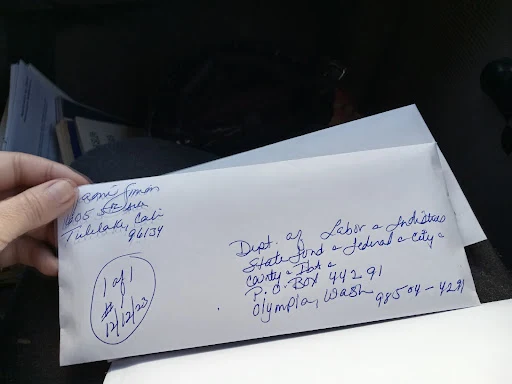 Simon
1605 5th Ave
Tulelake, Cali
96134
1 of 1
#1
12/12/23
Dept. of Labor & Industries
State Fund & Federal & City &
County & Data &
P.O. Box 44291
Olympia, Wash 98504-4291